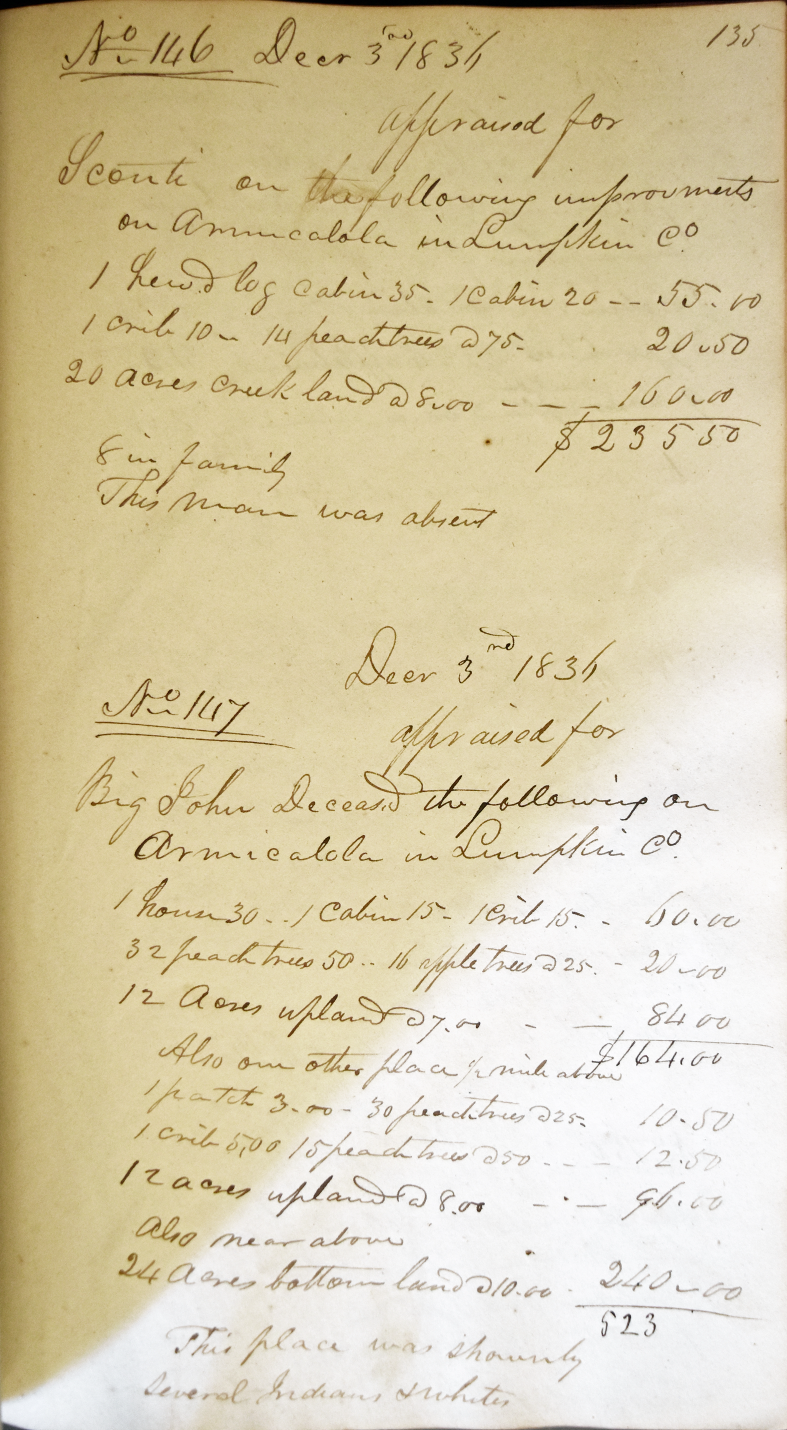 135
No 146 Decr 3rd 1836
appraised for
Sconti on the following improvments
on Armicalola in Lumpkin Co.
1 hew.d log cabin 35- 1 Cabin 20 -- 55.00
1 crib 10 - 14 peachtrees @ 75- 20.50
20 acres creek land @ 8.00 - - - 160.00
$ 235 50
8 in family
This man was absent
Decr 3rd 1836
No 147
appraised for
Big John Deceasd the following on
Armicalola in Lumpkin Co.
1 house 30 -- 1 Cabin 15 - 1 Crib 15. - 60.00
32 peach trees 50 -- 16 apple trees @ 25. - 20.00
12 Acres upland @ 7.00 - - 84 00
$164.00
Also one other place 1/2 mile above
1 patch 3.00 - 30 peachtrees @ 25- 10.50
1 crib 5,00 15 peach trees @ 50 - - - 12.50
12 acres upland @ 8.00 - - - 96.00
Also near above
24 Acres bottom land @ 10.00 - 240.00
523
This place was shown by
Several Indians & whites